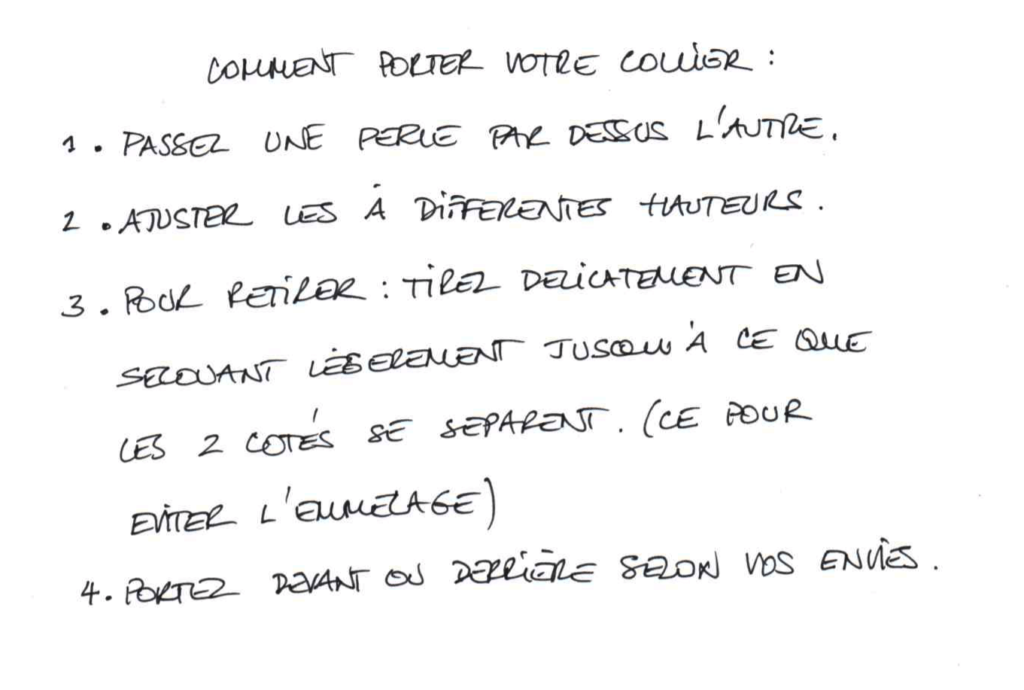 COMMENT PORTER VOTRE COLLIER :
1. PASSEZ UNE PERLE PAR DESSUS L'AUTRE.
2. AJUSTER LES À DIFFERENTES HAUTEURS.
3. POUR RETIRER : TIREZ DELICATEMENT EN
SECOUANT LÈGEREMENT JUSQU'À CE QUE
LES 2 COTÉS SE SEPARENT. (CE POUR
EVITER L'EMMELAGE)
4. PORTEZ DEVANT OU DERRIÈRE SELON VOS ENVIES.